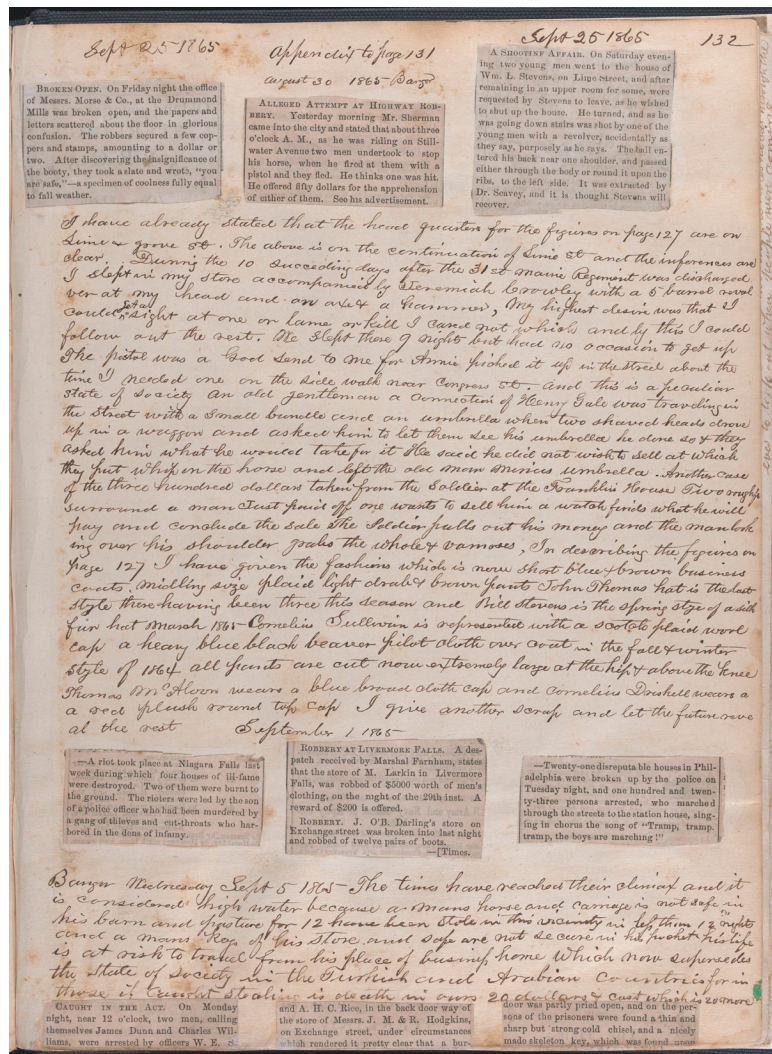 Sept 25 1865
Appendix to page 131
Sept 25 1865
132
August 30 1865 Bangor
BROKEN OPEN. On Friday night the office
of Messrs. Morse & Co., at the Drummond
Mills was broken open, and the papers and
letters scattered about the floor in glorious
confusion. The robbers secured a few cop-
pers and stamps, amounting to a dollar or
two. After discovering the insignificance of
the booty, they took a slate and wrote, "you
are safe,"—a specimen of coolness fully equal
to fall weather.
ALLEGED ATTEMPT AT HIGHWAY ROB-
BERY. Yesterday morning Mr. Sherman
came into the city and stated that about three
o'clock A. M., as he was riding on Still-
water Avenue two men undertook to stop
his horse, when he fired at them with a
pistol and they fled. He thinks one was hit.
He offered fifty dollars for the apprehension
of either of them. See his advertisement.
A SHOOTING AFFAIR. On Saturday even-
ing two young men went to the house of
Wm. L. Stevens, on Lime Street, and after
remaining in an upper room for some, were
requested by Stevens to leave, as he wished
to shut up the house. He turned, and as he
was going down stairs was shot by one of the
young men with a revolver, accidentally as
they say, purposely as he says. The ball en-
tered his back near one shoulder, and passed
either through the body or round it upon the
ribs, to the left side. It was extracted by
Dr. Seavey, and it is thought Stevens will
recover.
I have already stated that the head quarters for the figures on page 127 are on
Lime & grove St. The above is on the continuation of Lime St and the inferences are
clear. During the 10 succeding days after the 31st Maine Regiment was discharged
I slept in my store accompanied by Jeremiah Crowley with a 5 barrel revol
ver at my head and an axe & a hammer, My highest desire was that I
could get a sight at one or lame or kill I card not which and by this I could
follow out the rest. We slept there 9 nights but had no occasion to get up
The pistol was a God send to me for Annie picked it up in the street about the
time I needed one on the side walk near Congress St. And this is a peculiar
state of society an old gentleman a connection of Henry Gale was traveling in
the street with a small bundle and an umbrella when two shaved heads drove
up in a waggon and asked him to let them see his umbrella he done so & they
asked him what he would take for it He said he did not wish to sell at which
they put whip on the horse and left the old man minus umbrella. Another case
of the three hundred dollars taken from the soldier at the Franklin House Two roughs
surround a man Just paid off one wants to sell him a watch finds what he will
pay and conclude the sale the Soldier pulls out his money and the man look
ing over his shoulder grabs the whole & vamoses, In describing the figures on
page 127 I have goven the fashions which is now short blue & brown business
coats, midling size plaid light drab & brown pants John Thomas hat is the last
style there having been three this season and Bill Stevens is the spring style of a silk
fur hat March 1865 Cornelius Sullivan is represented with a scotch plaid worl
cap a heavy blue black beaver pilot cloth over coat in the fall & winter
style of 1864 all pants are cut now extremely large at the hip & above the knee
Thomas McAloon wears a blue broad cloth cap and Cornelius Driskell wears a
a red plush round top cap I give another scrap and let the future reve
al the rest September 1 1865
—A riot took place at Niagara Falls last
week during which four houses of ill-fame
were destroyed. Two of them were burnt to
the ground. The rioters were led by the son
of a police officer who had been murdered by
a gang of thieves and cut-throats who har-
bored in the dens of infamy.
ROBBERY AT LIVERMORE FALLS. A des-
patch received by Marshal Farnham, states
that the store of M. Larkin in Livermore
Falls, was robbed of $5000 worth of men's
clothing, on the night of the 29th inst. A
reward of $200 is offered.
ROBBERY. J. O'B. Darling's store on
Exchange street was broken into last night
and robbed of twelve pairs of boots.
—[Times.
—Twenty-one disreputable houses in Phil-
adelphia were broken up by the police on
Tuesday night, and one hundred and twen-
ty-three persons arrested, who marched
through the streets to the station house, sing-
ing in chorus the song of "Tramp, tramp,
tramp, the boys are marching!"
Bangor Wednesday Sept 5 1865 The times have reached their climax and it
is considered high water because a mans horse and carriage is not safe in
his barn and pasture for 12 have been stole in this vicinity in less than 12 nights
and a mans keg of his store and safe are not secure in his pocket his life
is at risk to travel from his place of business home which now supersedes
the state of society in the Turkish and Arabian Countries for in
those if caught stealing is death in ours 20 dollars & cost which is no more
CAUGHT IN THE ACT. On Monday
night, near 12 o'clock, two men, calling
themselves James Dunn and Charles Wil-
liams, were arrested by officers W. E. S.
and A. H. C. Rice, in the back door way of
the store of Messrs. J. M. & R. Hodgkins,
on Exchange street, under circumstances
which rendered it pretty clear that a bur-
door was partly pried open, and on the per-
sons of the prisoners were found a thin and
sharp but strong cold chisel, and a nicely
made skeleton key, which was found upon